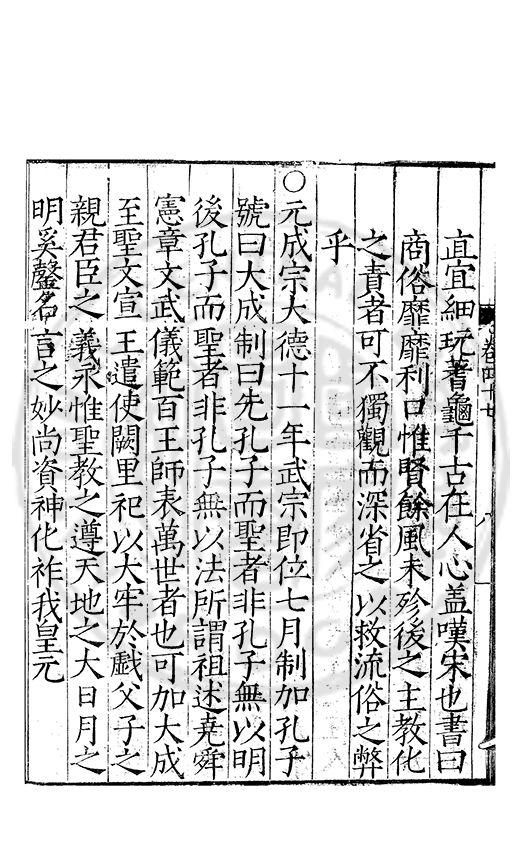 直宜細玩蓍龜千古在人心盖嘆宋也書曰
商俗靡靡利口惟賢餘風未殄後之主教化
之責者可不獨觀而深省之以救流俗之弊
乎
○元成宗大德十一年武宗即位七月制加孔子
號曰大成制曰先孔子而聖者非孔子無以明
後孔子而聖者非孔子無以法所謂祖述堯舜
憲章文武儀範百王師表萬世者也可加大成
至聖文宣王遣使闕里祀以大牢於戲父子之
親君臣之義永惟聖教之遵天地之大日月之
明奚罄名言之妙尚資神化祚我皇元
卷四十七
八